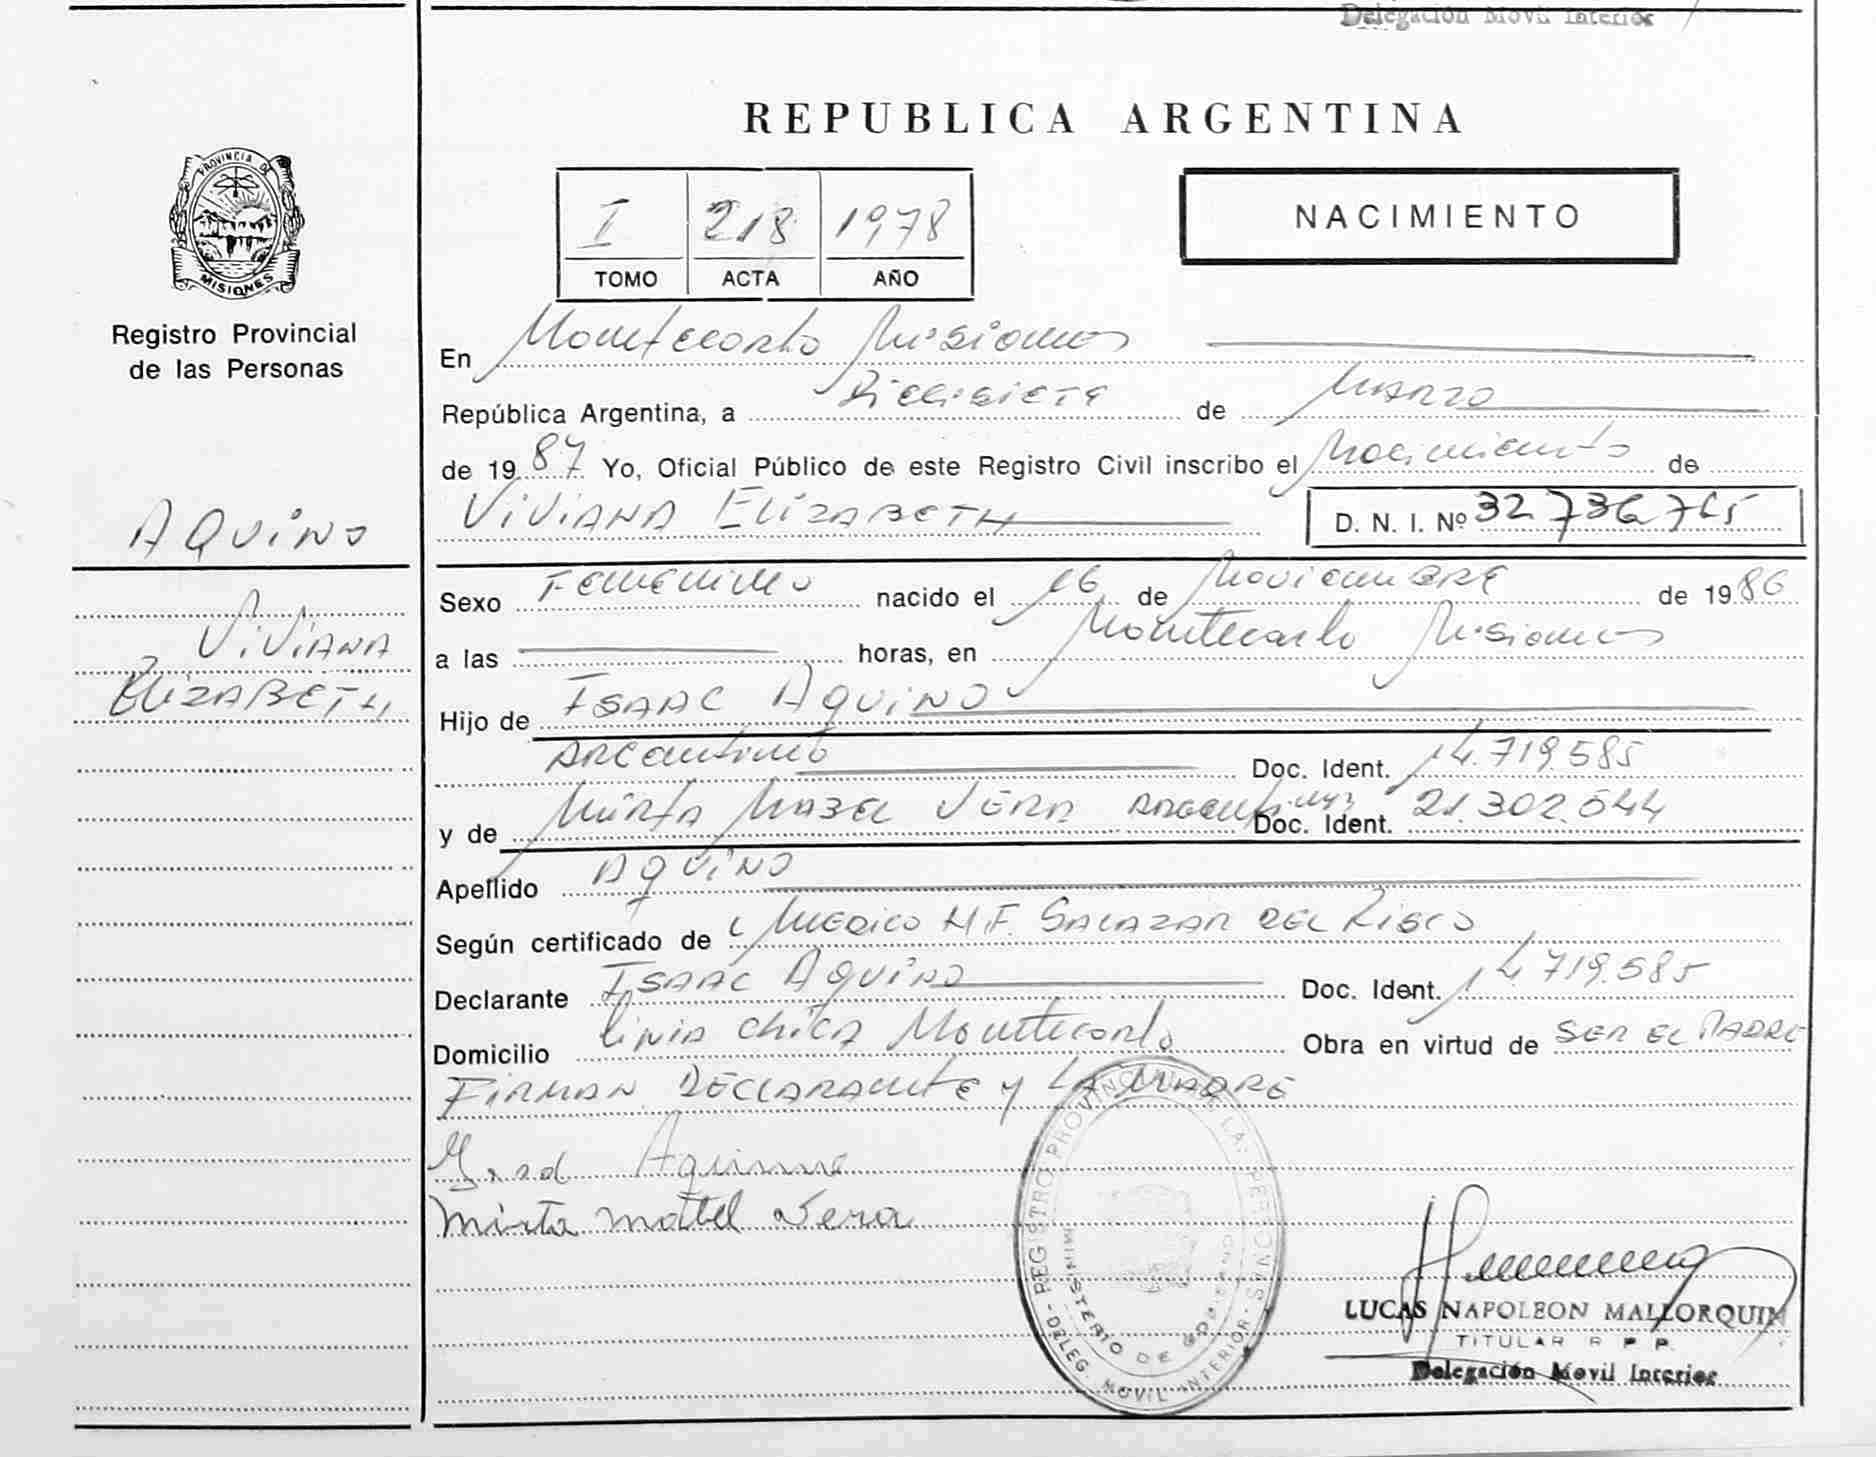 Delegación Movil Interior
REPUBLICA ARGENTINA
PROVINCIA DE
MISIONES
Registro Provincial
de las Personas
I 218 1978
TOMO ACTA AÑO
NACIMIENTO
En Montecarlo Misiones
República Argentina, a Diecisiete de Marzo
de 1987 Yo, Oficial Público de este Registro Civil inscribo el Nacimiento de
AQUINO
VIVIANA ELIZABETH D. N. I. Nº 32 736 765
VIVIANA
ELIZABETH
Sexo Femenino nacido el 16 de Noviembre de 1986
a las horas, en Montecarlo Misiones
Hijo de ISAAC AQUINO
Argentino Doc. Ident. 14.719.585
y de Mirta Mabel Vera Argentina Doc. Ident. 21.302.544
Apellido AQUINO
Según certificado de Medico H.F. SALAZAR DEL RISCO
Declarante ISAAC AQUINO Doc. Ident. 14.719.585
Domicilio Linia Chica Montecarlo Obra en virtud de SER EL PADRE
FIRMAN DECLARANTE y LA MADRE
Aquino
Mirta Mabel Vera
REGISTRO PROVINCIAL DE LAS PERSONAS - DELEG. MOVIL INTERIOR -
MINISTERIO DE GOBIERNO
LUCAS NAPOLEON MALLORQUIN
TITULAR R P P.
Delegación Movil Interior